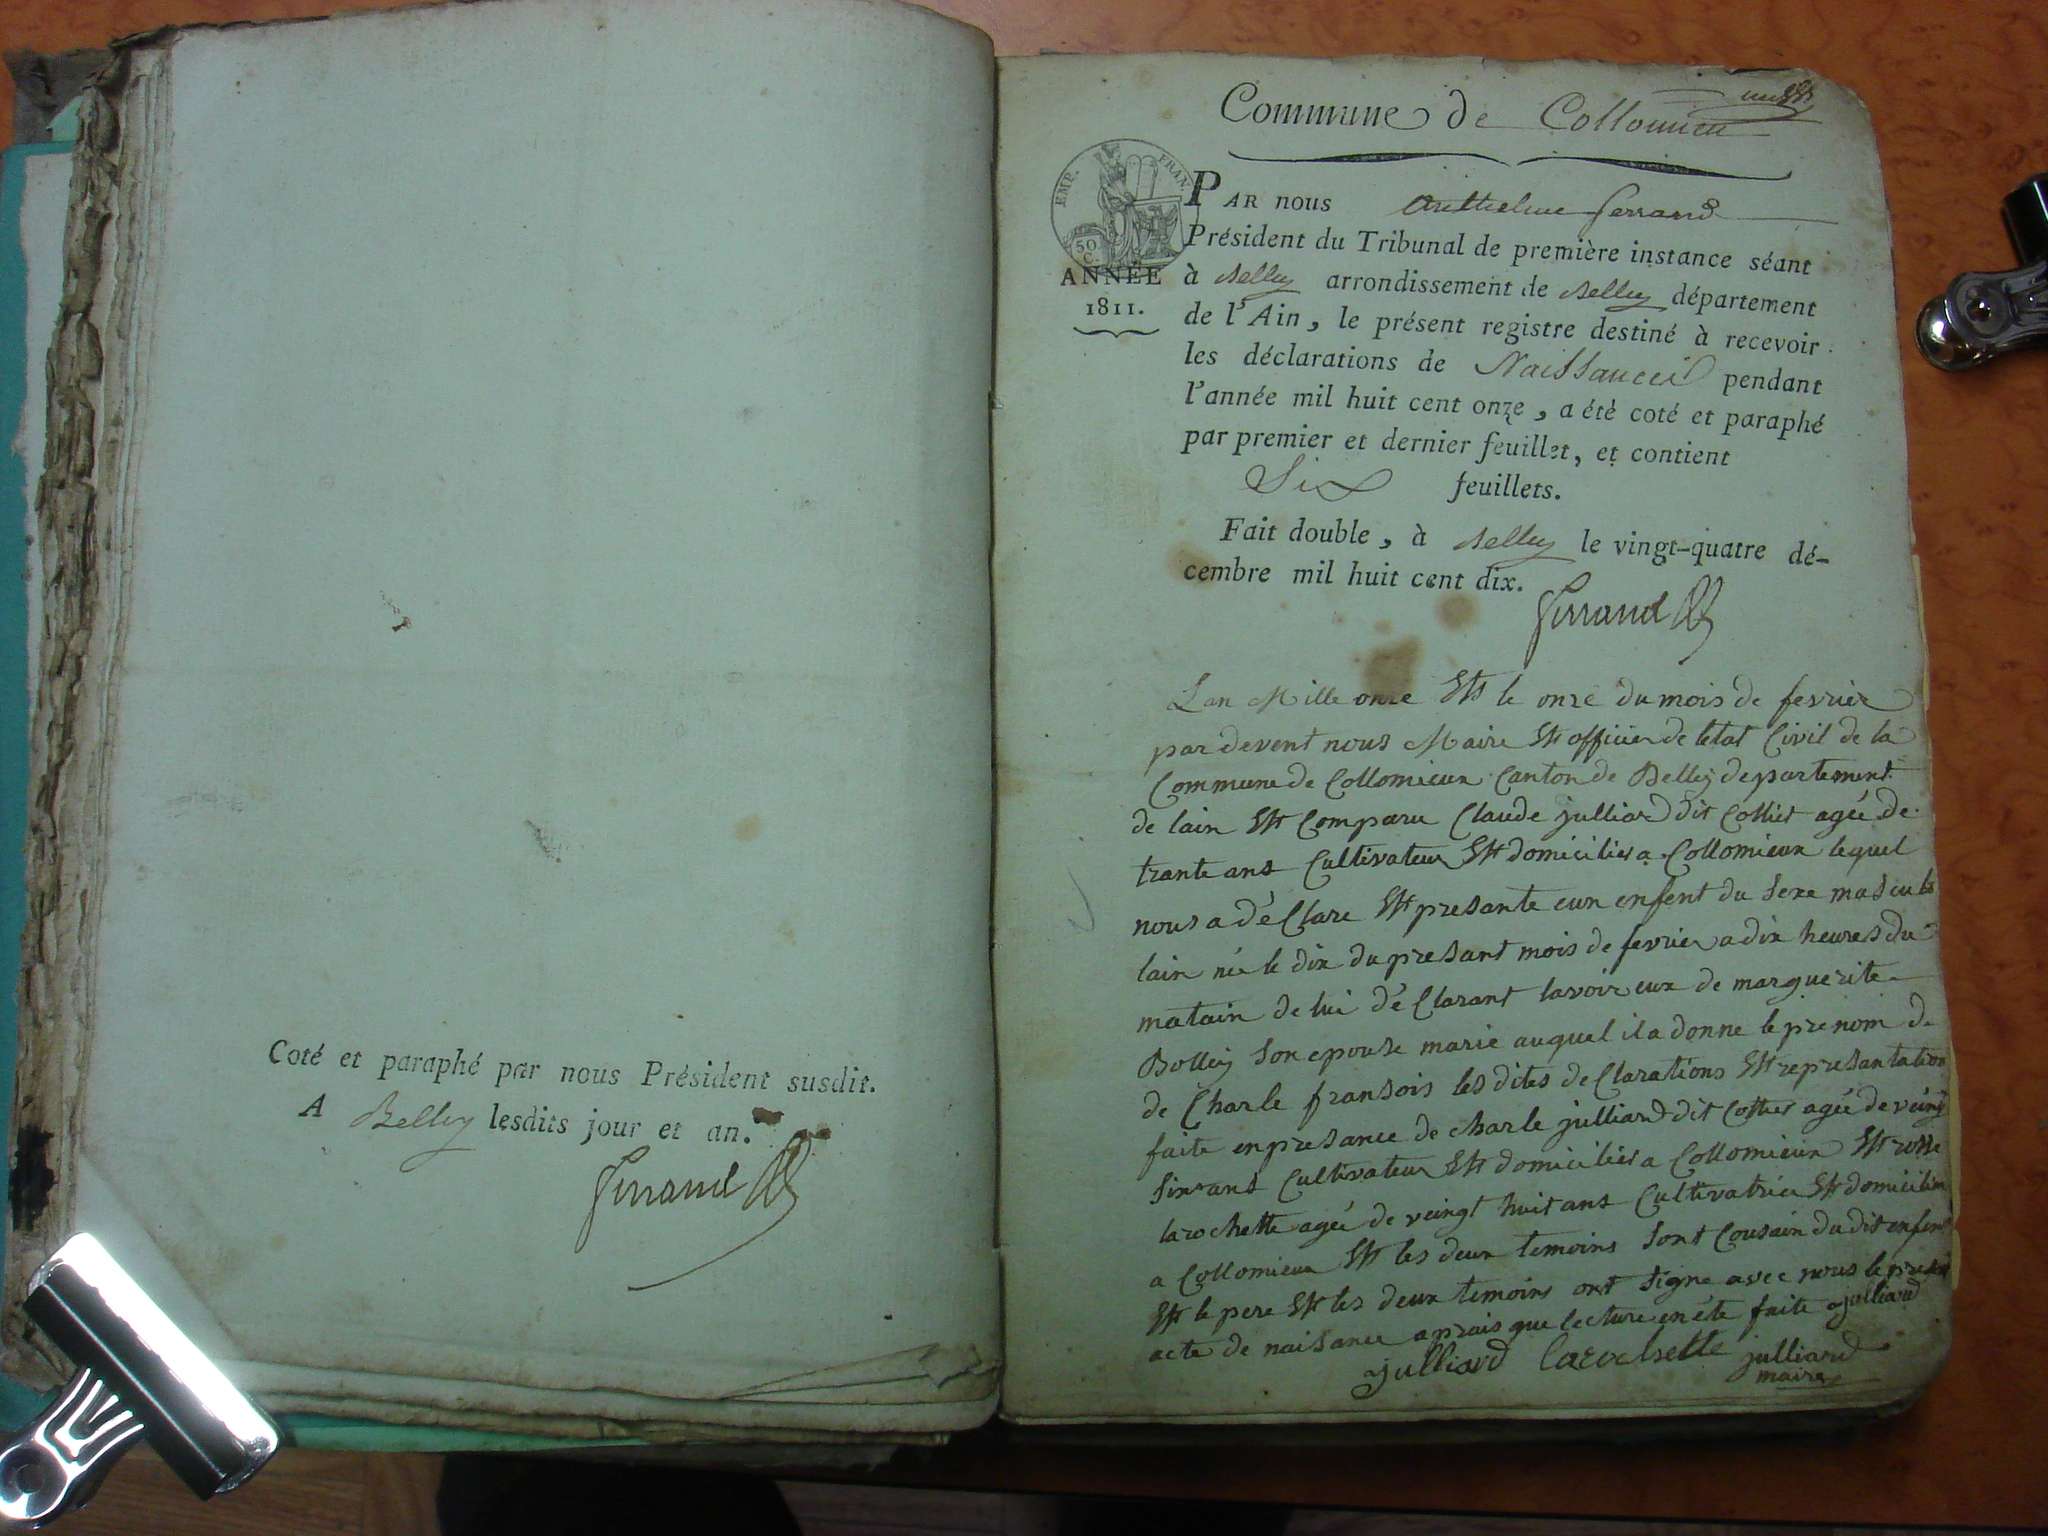 Coté et paraphé par nous Président susdit.
A Belley lesdits jour et an.
Ferrand
Commune de Collomieu
EMP. FRAN.
50 C.
ANNÉE
1811.
PAR nous Anthelme ferrand
Président du Tribunal de première instance séant
à Belley arrondissement de Belley département
de l'Ain, le présent registre destiné à recevoir
les déclarations de Naissances pendant
l'année mil huit cent onze, a été coté et paraphé
par premier et dernier feuillet, et contient
Six feuillets.
Fait double, à Belley le vingt-quatre dé-
cembre mil huit cent dix.
Ferrand
Lan Mille onze Et le onze du mois de fevrier
par devent nous Maire Et officier de letat Civil de la
Commune de Collomieux Canton de Belley departement
de lain Est Comparu Claude julliard dit Collier agée de
trante ans Cultivateur Et domicilier a Collomieux lequel
nous a déClare Et presante eun enfent du sexe mascu
lain née le dix du presant mois de fevrier a dix heures du
matain de lui déClarant lavoir eux de marguerite
Bolley son epouse marie auquel il a donne le prenom de
de Charle fransois les dites deClarations Et representation
faite en presance de charle julliard dit Collier agée de veingt
six ans Cultivateur Et domicilier a Collomieux Et rosse
larochette agée de veingt huit ans Cultivatrice Et domicilier
a Collomieux Et les deux temoins sont Cousain du dit enfent
Et le pere Et les deux temoins ont signe avec nous le present
acte de naisance aprais que lecture en éte faite julliard
julliard larochette julliard
maire